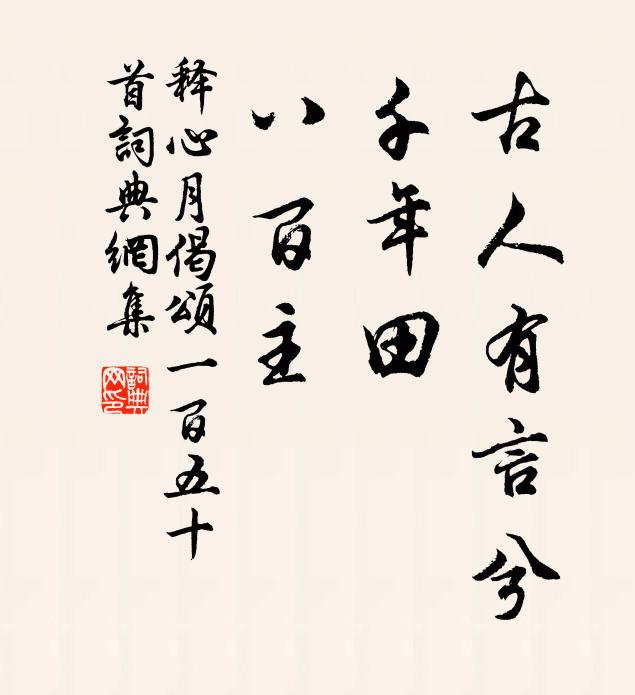 古人有言兮
千年田
八百主
释心月偈頌一百五十
首詞典網集
詞典网印